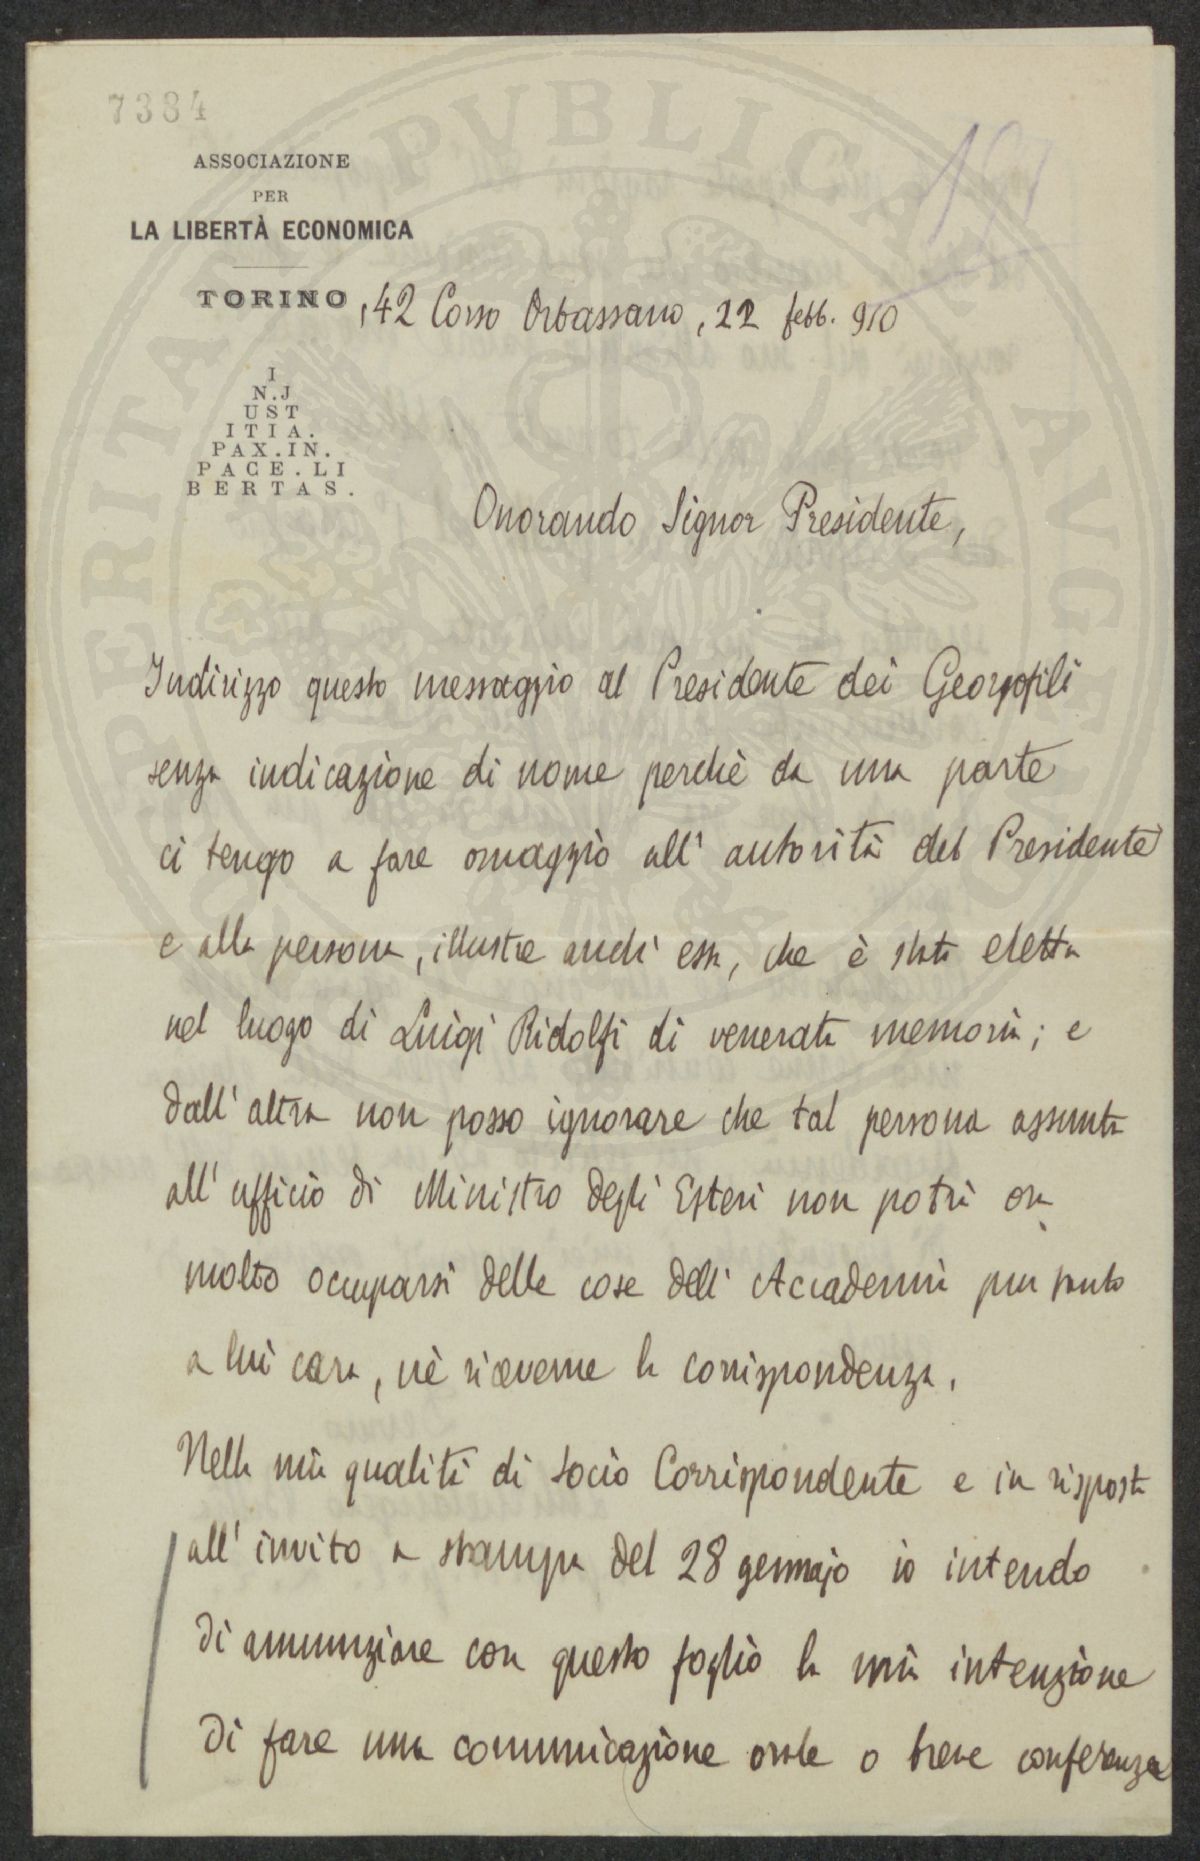 7384
ASSOCIAZIONE
PER
LA LIBERTÀ ECONOMICA
TORINO, 42 Corso Orbassano, 22 febb. 910
I
N.J
UST
ITIA.
PAX.IN.
PACE.LI
BERTAS.
Onorando Signor Presidente,
Indirizzo questo messaggio al Presidente dei Georgofili
senza indicazione di nome perchè da una parte
ci tengo a fare omaggio all' autorità del Presidente
e alla persona, illustre anch' essa, che è stata eletta
nel luogo di Luigi Ridolfi di venerata memoria; e
dall' altra non posso ignorare che tal persona assunta
all' ufficio di Ministro degli Esteri non potrà ora
molto occuparsi delle cose dell' Accademia pur tanto
a lui cara, nè riceverne la corrispondenza.
Nella mia qualità di Socio Corrispondente e in risposta
all' invito a stampa del 28 gennajo io intendo
di annunziare con questo foglio la mia intenzione
di fare una comunicazione orale o breve conferenza
PROSPERITATI PVBLICAE AVGENDAE